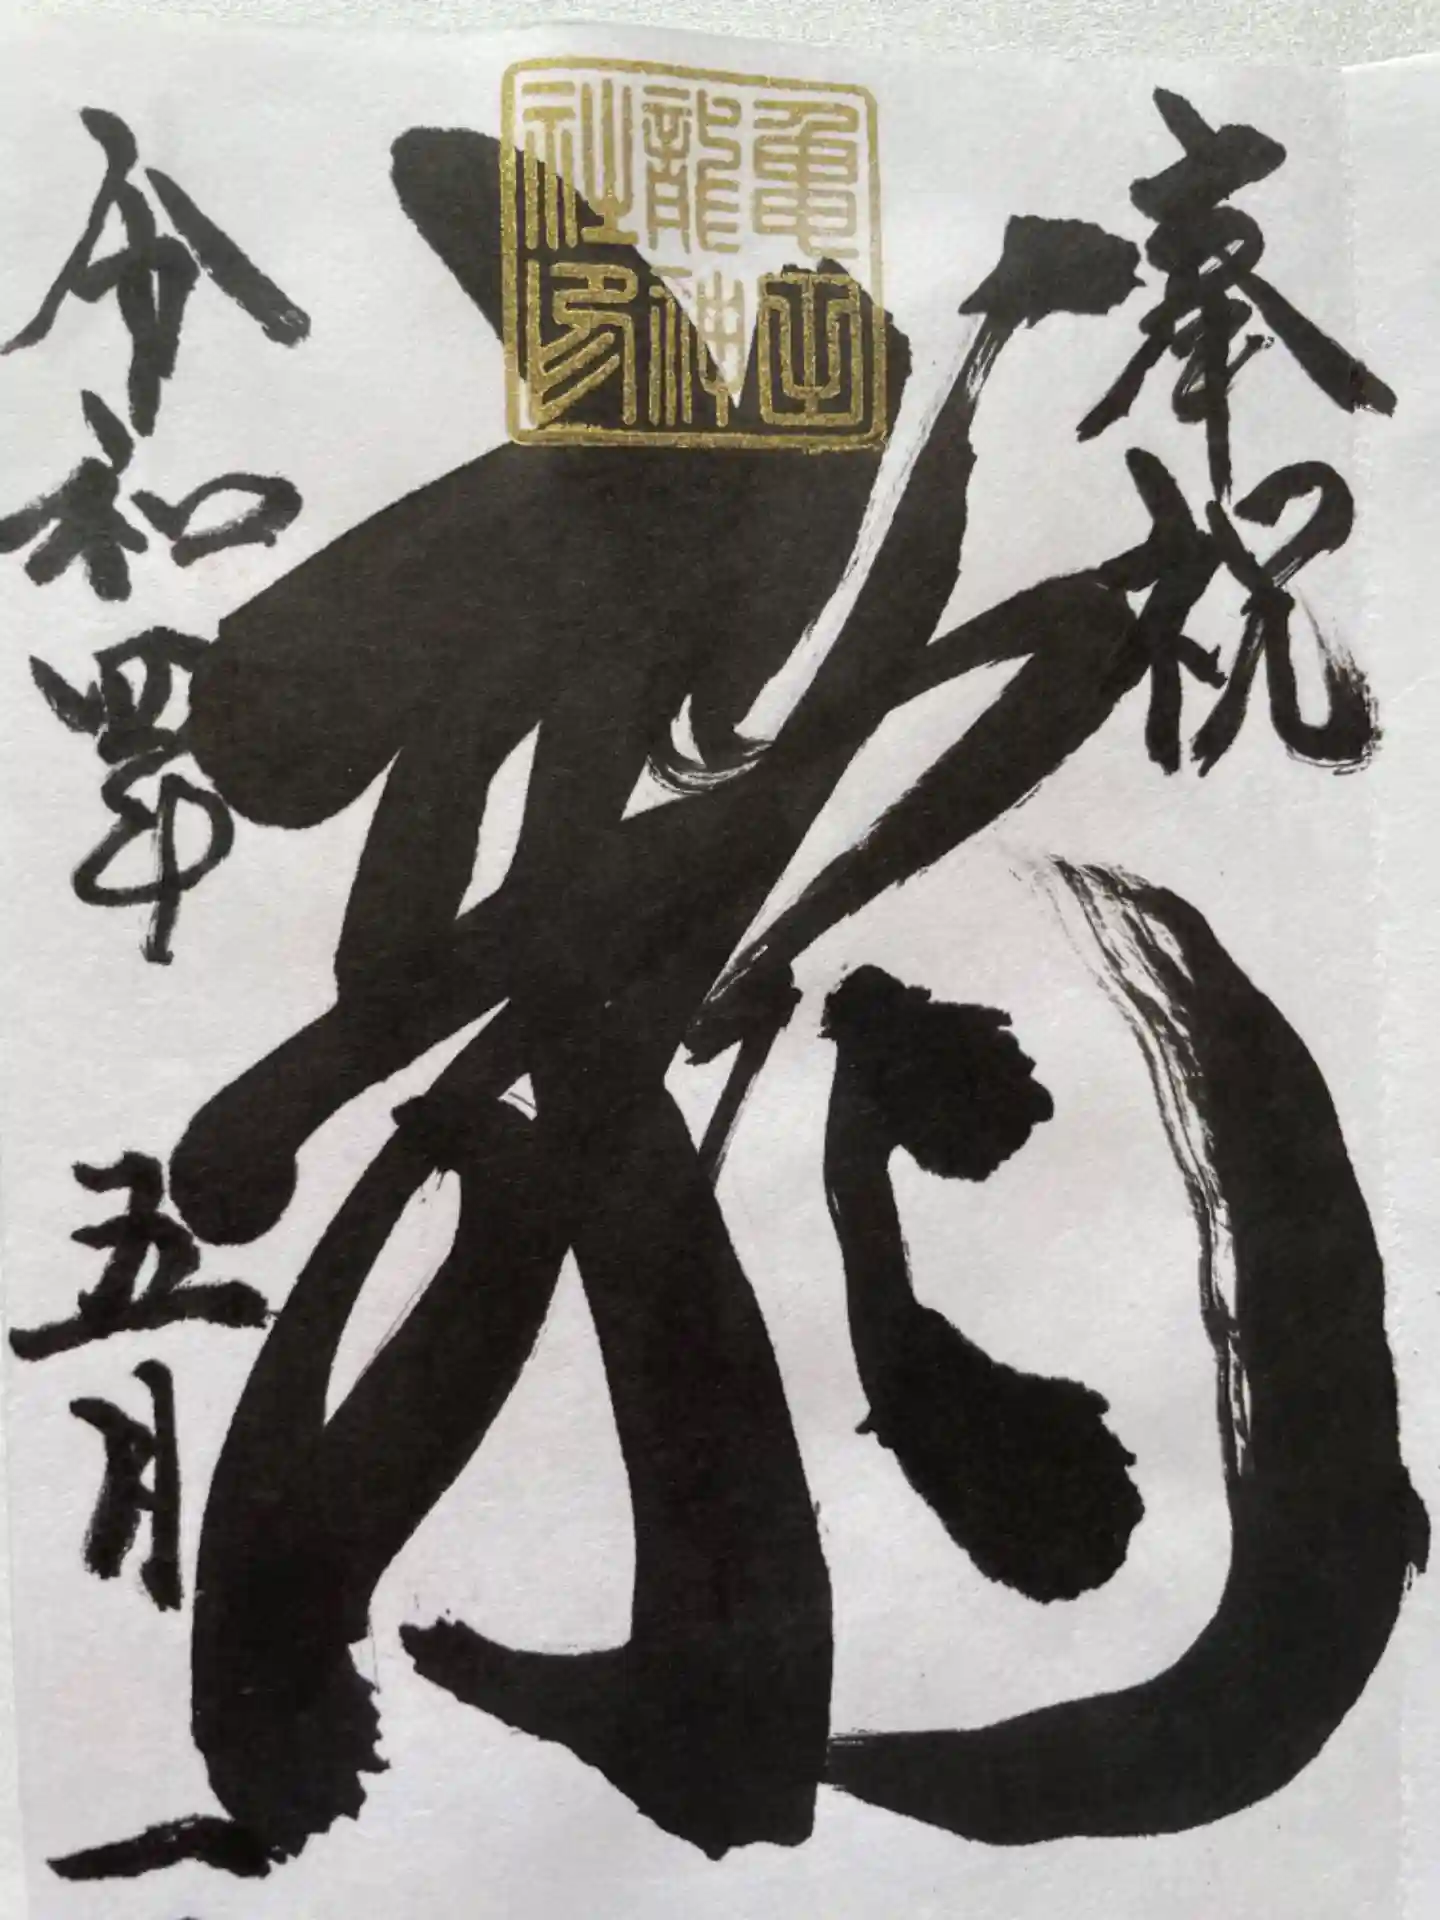 奉祝
龍
龍神
社印
令和四年 五月 一